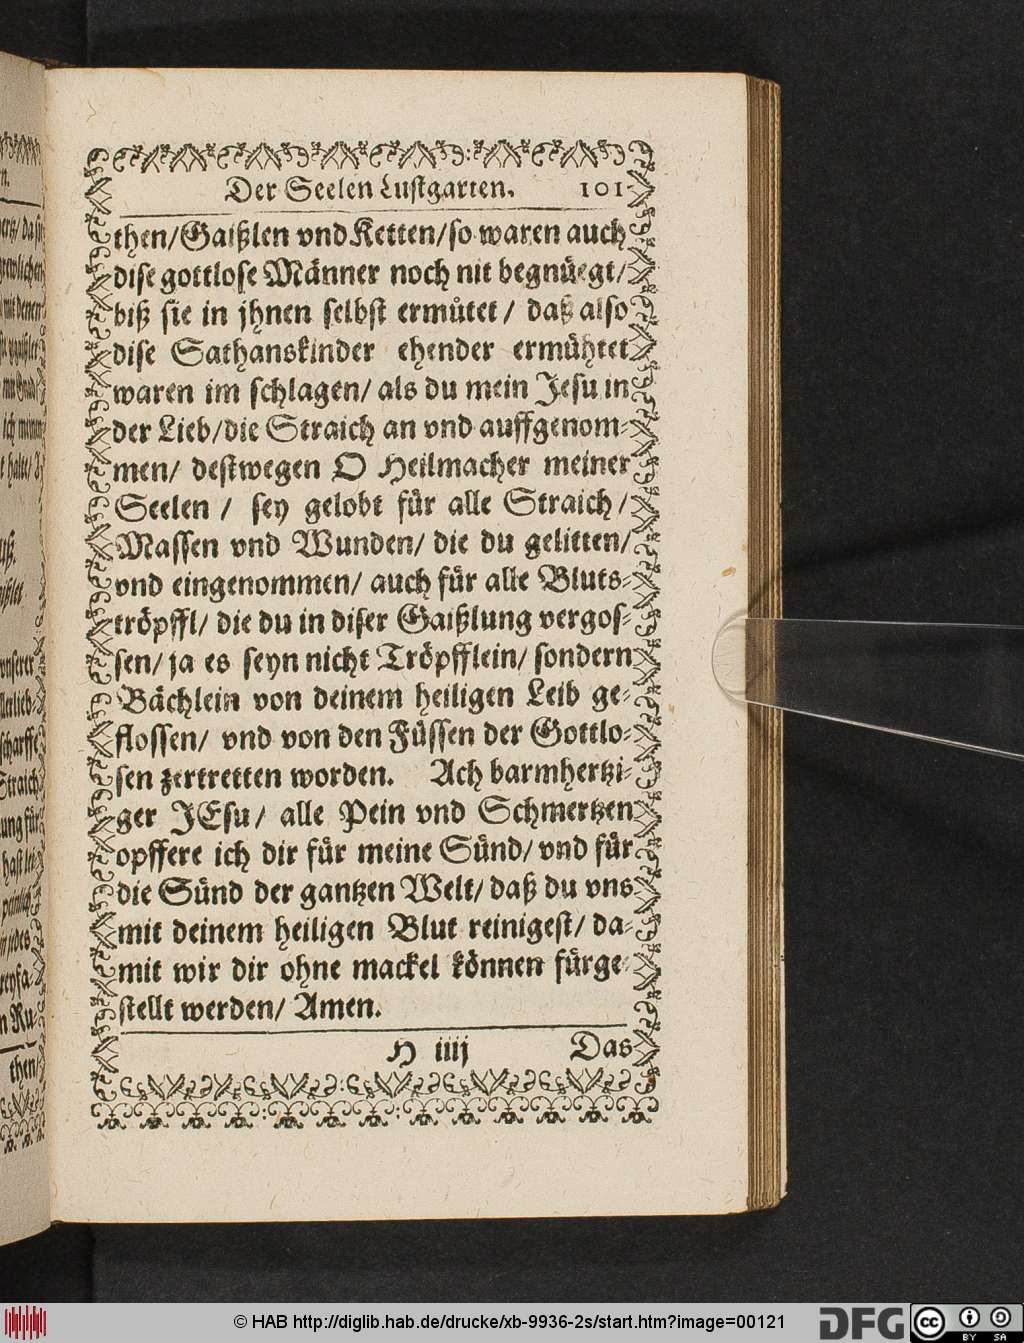 Der Seelen Lustgarten. 101
then/ Gaißlen vnd Ketten/ so waren auch
dise gottlose Männer noch nit begnüegt/
biß sie in jhnen selbst ermůtet / daß also
dise Sathanskinder ehender ermühtet
waren im schlagen/ als du mein Jesu in
der Lieb/ die Straich an vnd auffgenom-
men/ destwegen O Heilmacher meiner
Seelen / sey gelobt für alle Straich /
Massen vnd Wunden/ die du gelitten/
vnd eingenommen/ auch für alle Bluts-
tröpffl/ die du in diser Gaißlung vergos-
sen/ ja es seyn nicht Tröpfflein/ sondern
Bächlein von deinem heiligen Leib ge-
flossen/ vnd von den Füssen der Gottlo-
sen zertretten worden. Ach barmhertzi-
ger JEsu / alle Pein vnd Schmertzen
opffere ich dir für meine Sünd/ vnd für
die Sünd der gantzen Welt/ daß du vns
mit deinem heiligen Blut reinigest/ da-
mit wir dir ohne mackel können fürge-
stellt werden/ Amen.
H iiij Das
© HAB http://diglib.hab.de/drucke/xb-9936-2s/start.htm?image=00121
DFG
cc BY SA